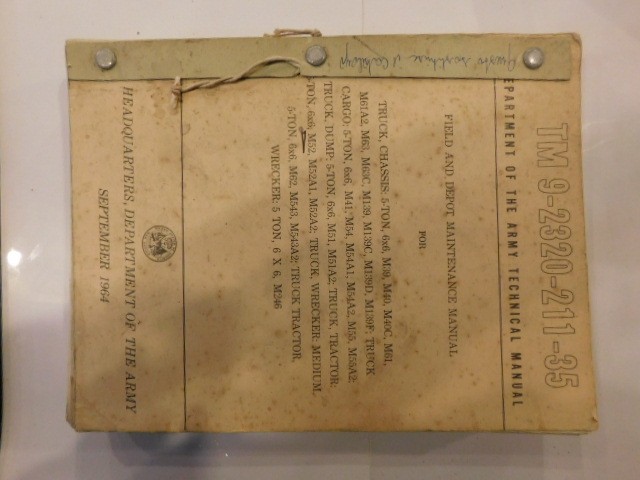 TM 9-2320-211-35
DEPARTMENT OF THE ARMY TECHNICAL MANUAL
FIELD AND DEPOT MAINTENANCE MANUAL
FOR
TRUCK, CHASSIS: 5-TON, 6x6, M39, M40, M40C, M61,
M61A2, M63, M63C, M139, M139C, M139D, M139F; TRUCK
CARGO: 5-TON, 6x6, M41, M54, M54A1, M54A2, M55, M55A2;
TRUCK, DUMP: 5-TON, 6x6, M51, M51A2; TRUCK, TRACTOR:
-TON, 6x6, M52, M52A1, M52A2; TRUCK, WRECKER: MEDIUM,
5-TON, 6x6, M62, M543, M543A2; TRUCK TRACTOR,
WRECKER: 5 TON, 6 X 6, M246
HEADQUARTERS, DEPARTMENT OF THE ARMY
SEPTEMBER 1964
Questo il